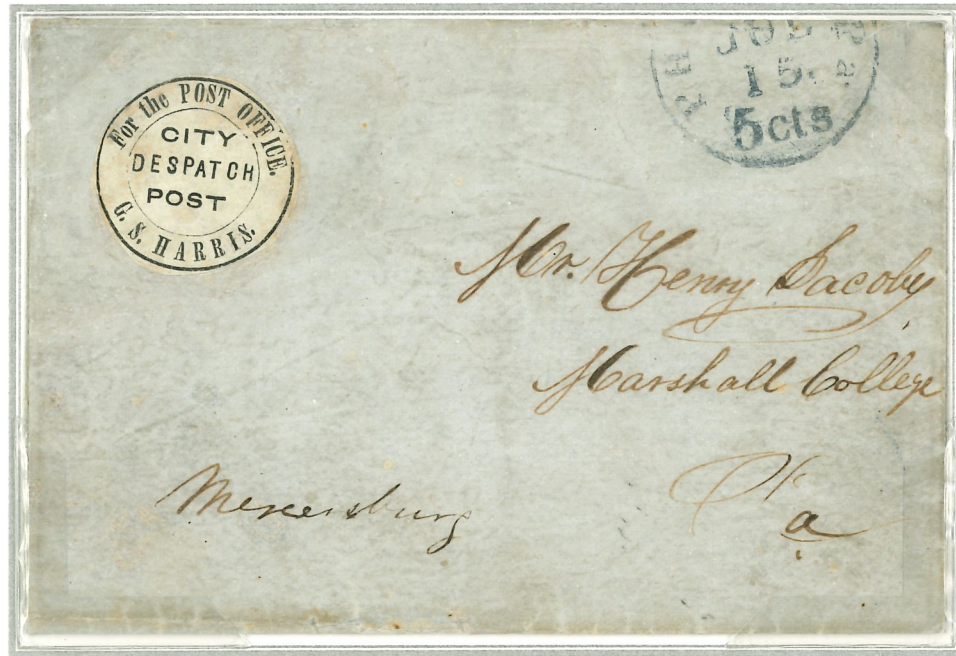 For the POST OFFICE.
CITY
DESPATCH
POST
G. S. HARRIS.
JUL
15
5cts
Mr. Henry Jacoby
Marshall College
Pa
Mercersburg